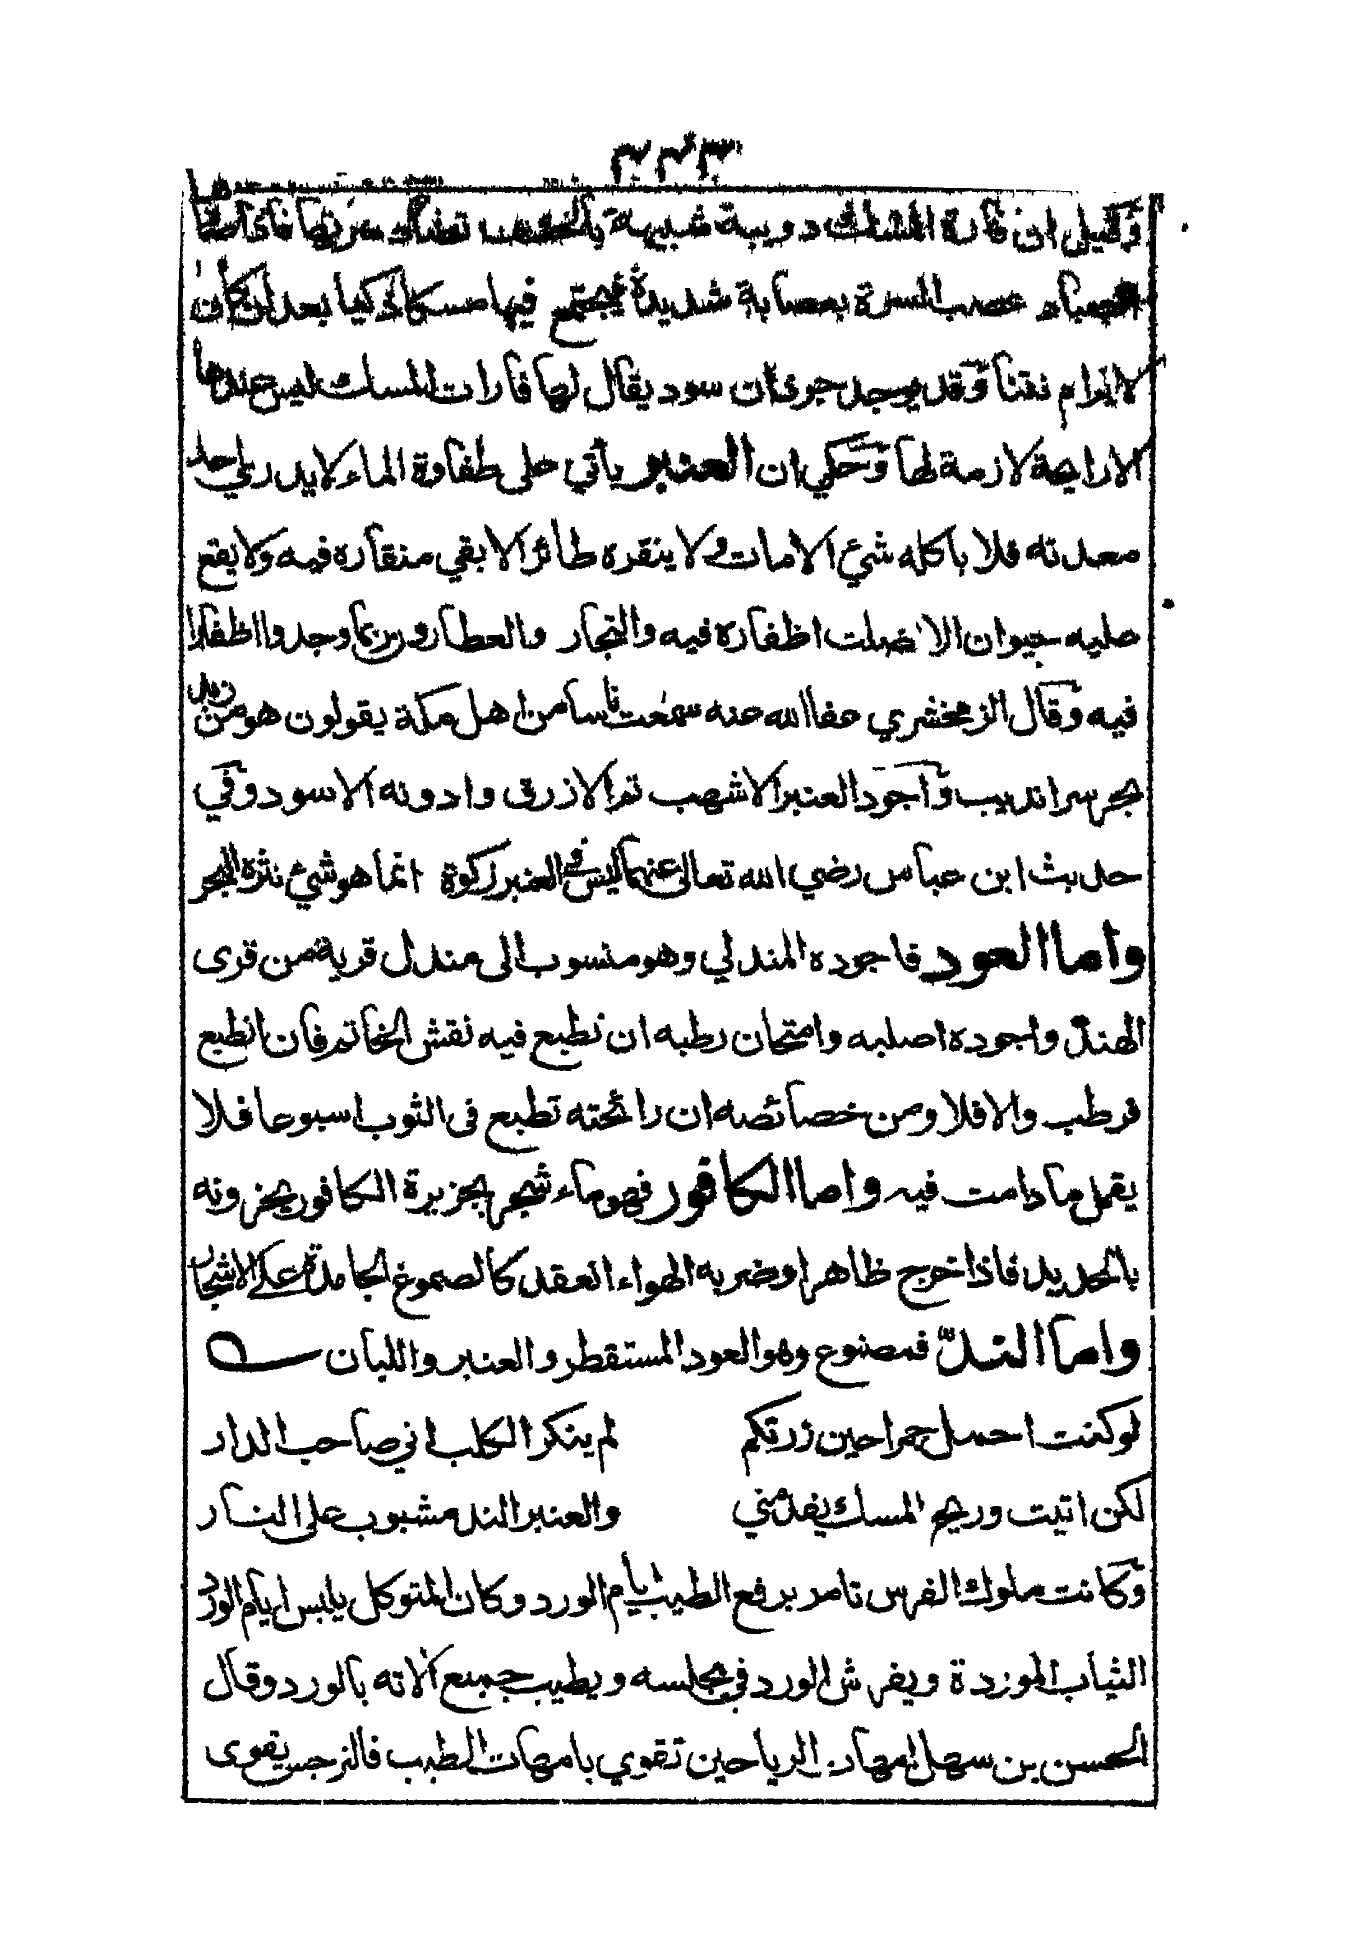 ٣٤٣
وقيل ان فارة المسك دويبة شبيهة بالخشف تصاد من سرتها فاذا صادها
الصياد عصب السرة بعصابة شديدة فيجتمع فيها مسكا ذكيا بعد ان كان
لا يرام نتنا وقد يوجد جرذان سود يقال لها فارات المسك ليس عندها
الا رايحة لازمة لها وحكي ان العنبر ياتي على طفاوة الماء لا يدري احد
معدنه فلا ياكله شيء الا مات ولا ينقره طائر الا بقي منقاره فيه ولا يقع
عليه حيوان الا نصلت اظفاره فيه والتجار والعطارون ربما وجدوا اظفارا
فيه وقال الزمخشري عفا الله عنه سمعت ناسا من اهل مكة يقولون هو من زبد
بحر سرانديب واجود العنبر الاشهب ثم الازرق وادونه الاسود وفي
حديث ابن عباس رضي الله تعالى عنهما ليس في العنبر زكوة انما هو شيء نثره البحر
واما العود فاجوده المندلي وهو منسوب الى مندل قرية من قرى
الهند واجوده اصلبه وامتحان رطبه ان تطبع فيه نقش الخاتم فان انطبع
فرطب والا فلا ومن خصائصه ان رائحته تطبع في الثوب اسبوعا فلا
يقمل ما دامت فيه واما الكافور فهو ماء شجر بجزيرة الكافور يحزونه
بالحديد فاذا خرج ظاهرا وضربه الهواء انعقد كالصموغ الجامدة على الاشجار
واما الند فمصنوع وهو العود المستقطر والعنبر واللبان
لو كنت احمل خمرا حين زرتكم لم ينكر الكلب اني صاحب الدار
لكن اتيت وريح المسك يفدمني والعنبر الند مشبوب على النار
وكانت ملوك الفرس تامر برفع الطيب ايام الورد وكان المتوكل يلبس ايام الورد
الثياب الموردة ويفرش الورد في مجلسه ويطيب جميع الاته بالورد وقال
الحسن بن سهل امهات الرياحين تقوي بامهات الطيب فالنرجس يقوى